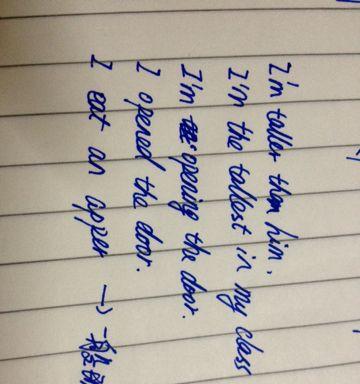 I'm taller than him.
I'm the tallest in my class
I'm opening the door.
I opened the door.
I eat an apper →